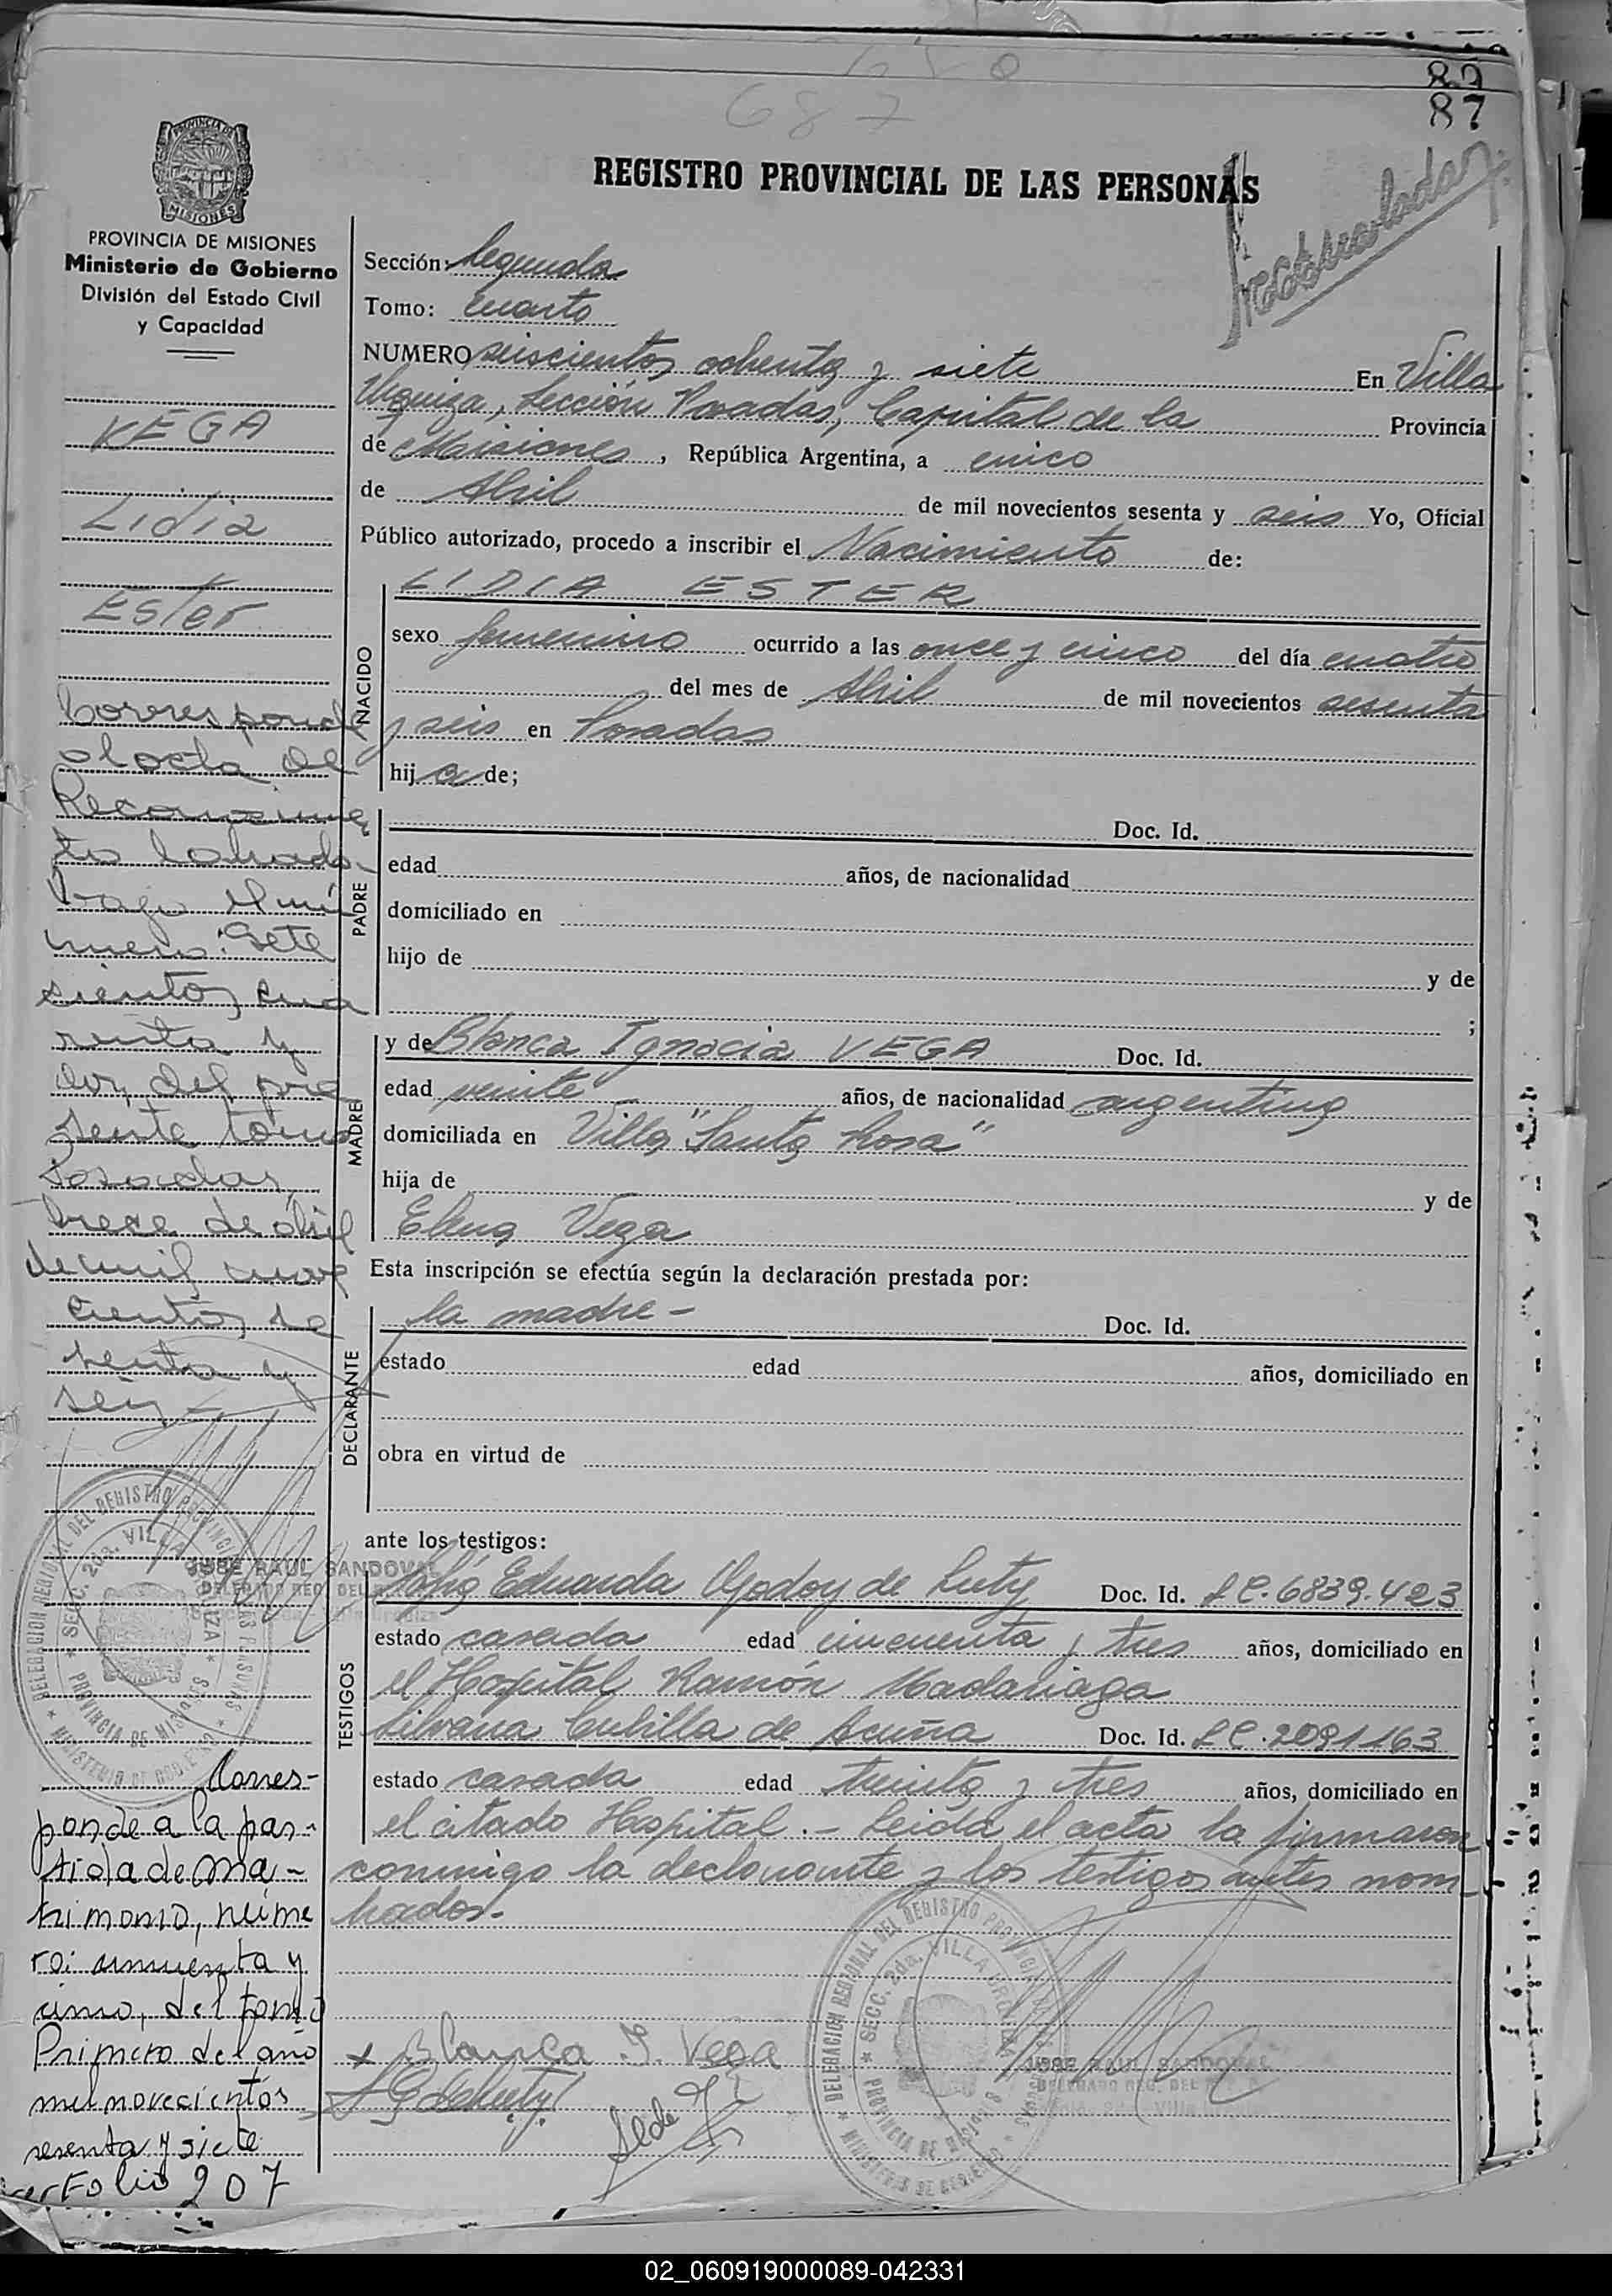 687
89
87
REGISTRO PROVINCIAL DE LAS PERSONAS
PROVINCIA DE MISIONES
Ministerio de Gobierno
División del Estado Civil
y Capacidad
VEGA
Lidia
Ester
Corresponde
al acta de
Reconosimien
to labrado
bajo el nú
mero: Sete
sientos cua
renta y
dos del pre
sente tomo
Posadas,
trece de abril
de mil nove
cientos se
senta y
seis
DELEGACION REGIONAL DEL REGISTRO PROVINCIAL DE LAS PERSONAS
SECC. 2da. VILLA URQUIZA
PROVINCIA DE MISIONES
MINISTERIO DE GOBIERNO
JOSE RAUL SANDOVAL
DELEGADO REG. DEL
Corres-
ponde a la par-
tida de ma-
trimonio, núme
ro: cincuenta y
cinco, del tomo
Primero del año
mil novecientos
sesenta y siete
Folio 207
Sección: Segunda
Tomo: cuarto
NUMERO seiscientos ochenta y siete En Villa
Urquiza, Sección Posadas, Capital de la Provincia
de Misiones, República Argentina, a cinco
de Abril de mil novecientos sesenta y seis Yo, Oficial
Público autorizado, procedo a inscribir el Nacimiento de:
NACIDO
LIDIA ESTER
sexo femenino ocurrido a las once y cinco del día cuatro
del mes de Abril de mil novecientos sesenta
y seis en Posadas
hija de;
PADRE
Doc. Id.
edad años, de nacionalidad
domiciliado en
hijo de y de
;
MADRE
y de Blanca Ignacia VEGA Doc. Id.
edad veinte años, de nacionalidad argentina
domiciliada en Villa "Santa Rosa"
hija de y de
Elena Vega
Esta inscripción se efectúa según la declaración prestada por:
DECLARANTE
la madre - Doc. Id.
estado edad años, domiciliado en
obra en virtud de
ante los testigos:
TESTIGOS
Eduarda Godoy de Doc. Id. LC. 6839.423
estado casada edad cincuenta y tres años, domiciliado en
el Hospital Ramón Madariaga
Silvana Cubilla de Acuña Doc. Id. LC. 2091163
estado casada edad treinta y tres años, domiciliado en
el citado Hospital.- Leída el acta la firmaron
conmigo la declarante y los testigos antes nom-
brados.-
x Blanca I. Vega
DELEGACION REGIONAL DEL REGISTRO PROVINCIAL
SECC. 2da. VILLA URQUIZA
PROVINCIA DE MISIONES
MINISTERIO DE GOBIERNO
JOSE RAUL SANDOVAL
DELEGADO REG. DEL
02_060919000089-042331